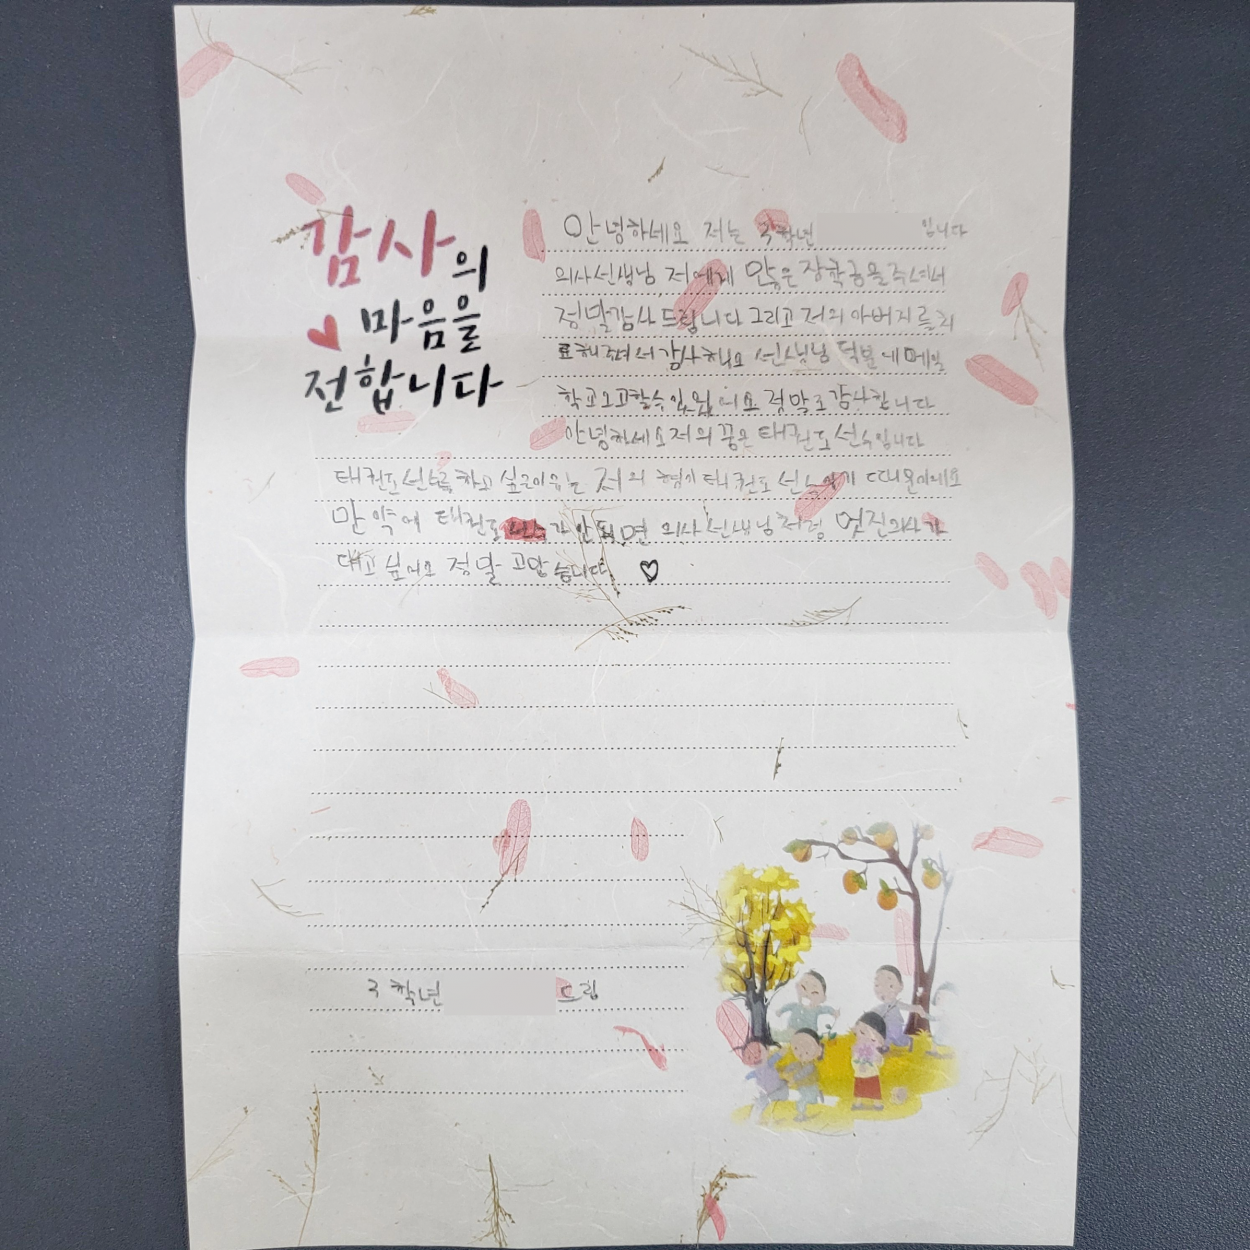 감사의
마음을
전합니다
안녕하세요 저는 3학년 입니다
의사선생님 저에게 많은 장학금을 주셔서
정말감사드립니다 그리고 저의 아버지를치
료해주셔서 감사해요 선생님 덕분에 매일
학교오고할수있었어요 정말로감사합니다
안녕하세요저의 꿈은 태권도 선수입니다
태권도선수를하고 싶은이유는 저의 형가 태권도 선수 때문이에요
만약에 태권도 선수가 안되면 의사선생님처럼 멋진의사가
대고 싶어요 정말 고맙습니다 ♡
3학년 드림